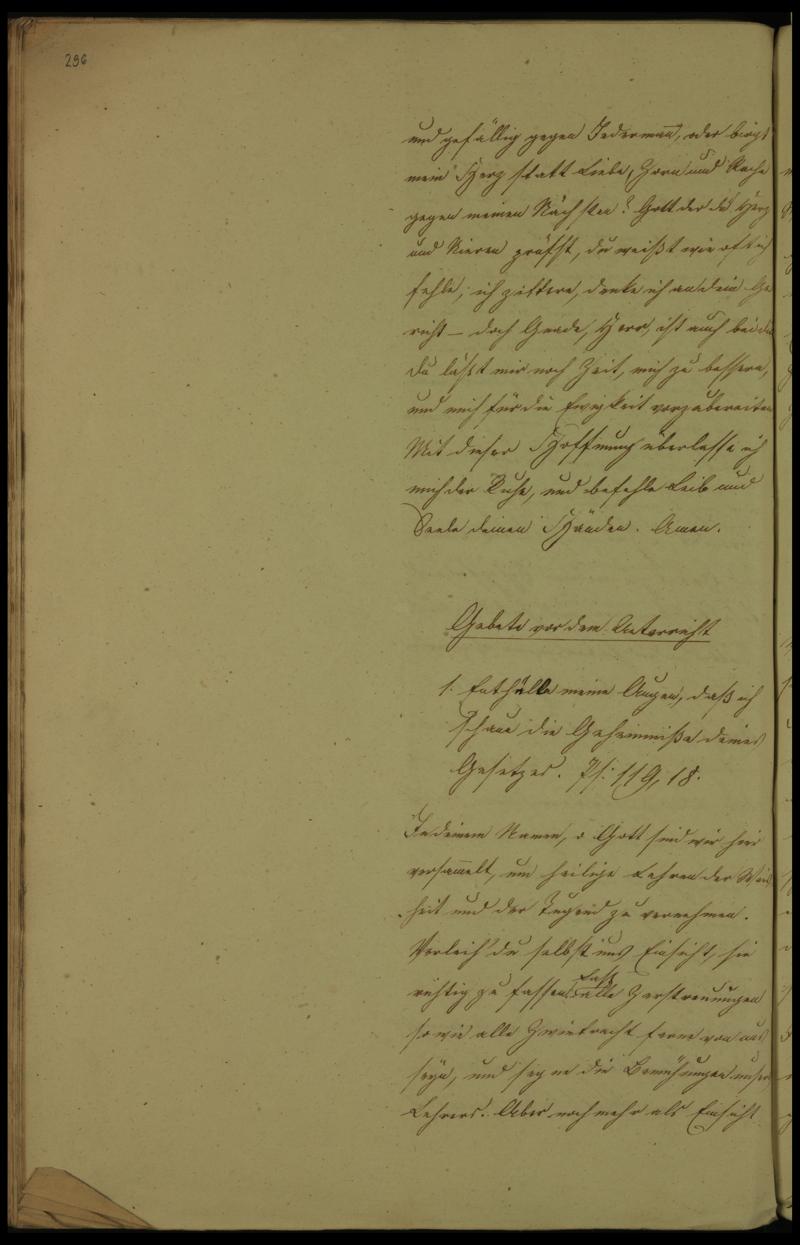 296
und gefällig gegen Jedermann, oder birgt
mein Herz statt Liebe, Zorn und Rache
gegen meinen Nächsten? Gott der du Herz
und Nieren prüfst, du weißt wie oft ich
fehle; ich zittere, denke ich an dein Ge
richt – doch Gnade, Herr, ist auch bei dir
du läßt mir noch Zeit, mich zu bessern,
und mich für die Ewigkeit vorzubereiten
Mit dieser Hoffnung überlasse ich
mich der Ruhe, und befehle Leib und
Seele deinen Händen. Amen.
Gebete vor dem Unterricht
1. Enthülle meine Augen, daß ich
schaue die Geheimniße deines
Gesetzes. Ps: 119, 18.
In deinem Namen, o Gott sind wir hier
versammelt, um heilige Lehren der Weis
heit und der Tugend zu vernehmen.
Verleih' du selbst uns Einsicht, sie
richtig zu fassen, laß alle Zerstreuungen
so wie alle Zwietracht ferne von uns
seyn, und segne die Bemühungen unsers
Lehrers. Aber noch mehr als Einsicht